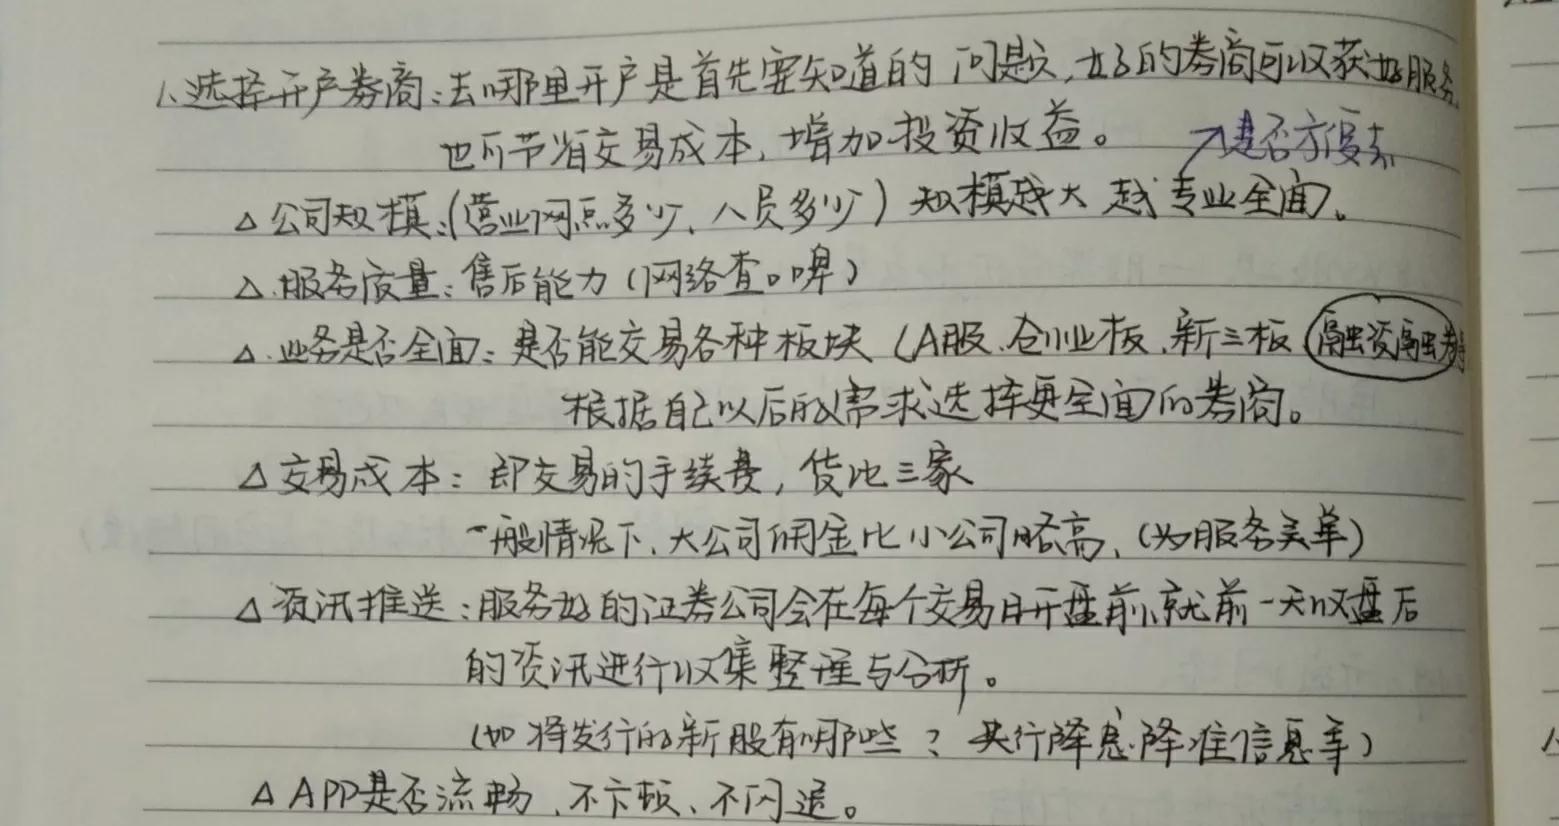 1、选择开户券商：去哪里开户是首先要知道的问题，好的券商可以获好服务
也可节省交易成本，增加投资收益。
↗是否方便
△公司规模：（营业网点多少、人员多少）规模越大越专业全面。
△.服务质量：售后能力（网络查口碑）
△.业务是否全面：是否能交易各种板块（A服、创业板、新三板 融资融券
根据自己以后的需求选择更全面的券商。
△交易成本：即交易的手续费，货比三家
一般情况下、大公司佣金比小公司略高、（为服务买单）
△资讯推送：服务好的证券公司会在每个交易日开盘前、就前一天收盘后
的资讯进行收集整理与分析。
（如将发行的新股有哪些？央行降息、降准信息等）
△APP是否流畅、不卡顿、不闪退。